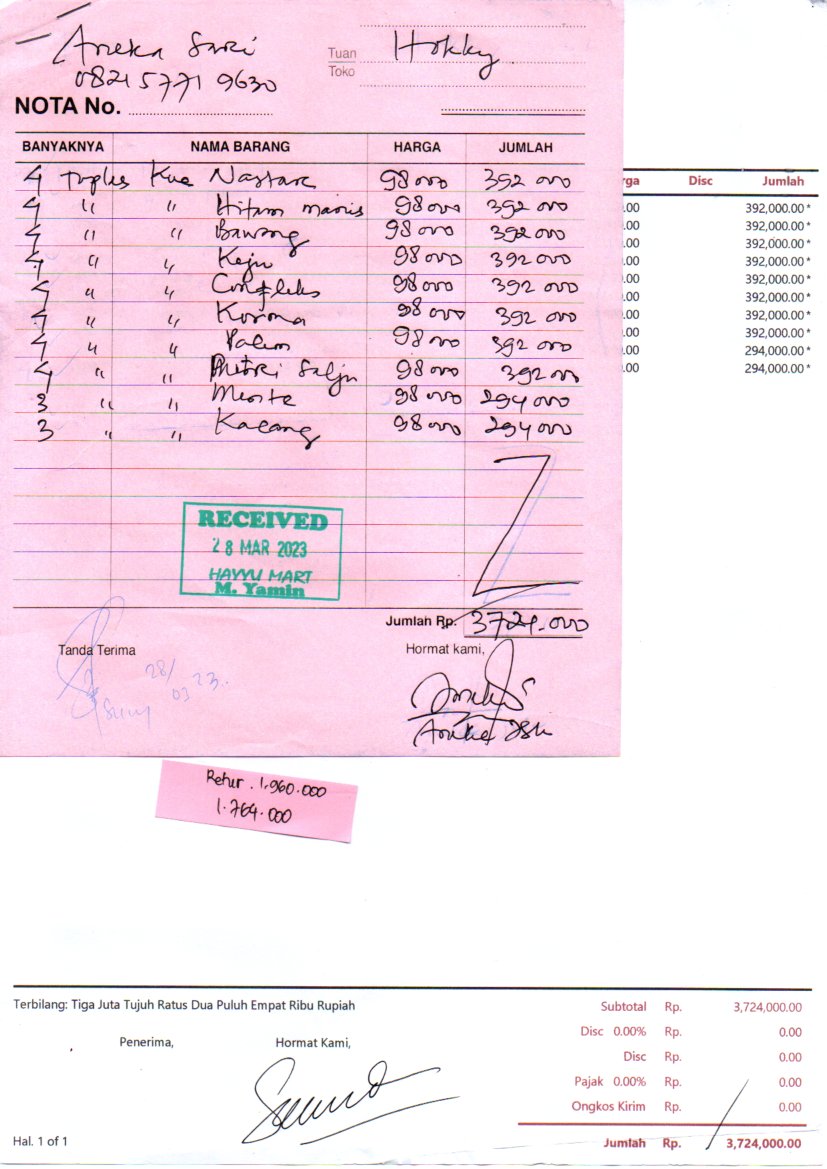 Aneka Sari
0821 5771 9630
Tuan
Toko
Hokky
NOTA No.
BANYAKNYA NAMA BARANG HARGA JUMLAH
4 toples Kue Nastar 98 000 392 000
4 " " Hitam manis 98 000 392 000
4 " " Bawang 98 000 392 000
4 " " Keju 98 000 392 000
4 " " Cornfleks 98 000 392 000
4 " " Korma 98 000 392 000
4 " " Palem 98 000 392 000
4 " " Putri Salju 98 000 392 000
3 " " Mente 98 000 294 000
3 " " Kacang 98 000 294 000
RECEIVED
28 MAR 2023
HAYYU MART
M. Yamin
Jumlah Rp. 3724.000
Tanda Terima
Hormat kami,
28/03 23
rga Disc Jumlah
.00 392,000.00*
.00 392,000.00*
.00 392,000.00*
.00 392,000.00*
.00 392,000.00*
.00 392,000.00*
.00 392,000.00*
.00 392,000.00*
.00 294,000.00*
.00 294,000.00*
Retur. 1.960.000
1.764.000
Terbilang: Tiga Juta Tujuh Ratus Dua Puluh Empat Ribu Rupiah
Penerima,
Hormat Kami,
Subtotal Rp. 3,724,000.00
Disc 0.00% Rp. 0.00
Disc Rp. 0.00
Pajak 0.00% Rp. 0.00
Ongkos Kirim Rp. 0.00
Jumlah Rp. 3,724,000.00
Hal. 1 of 1